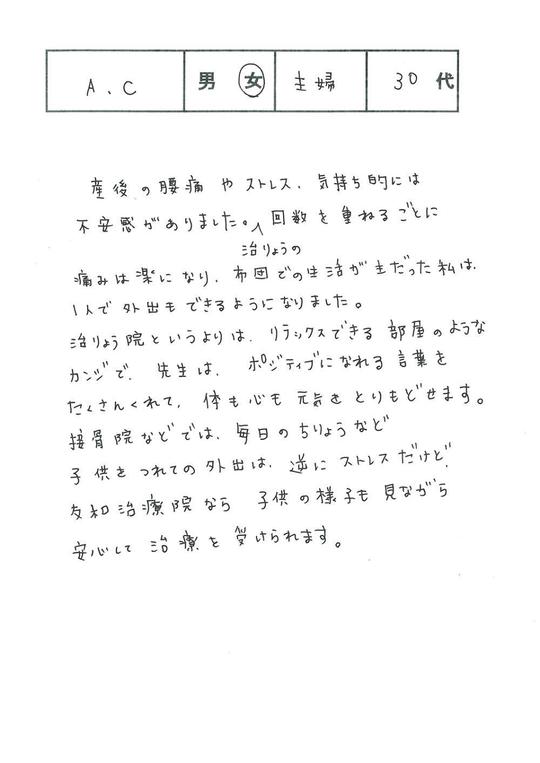 A、C 男 女 主婦 30 代
産後の腰痛やストレス、気持ち的には
不安感がありました。回数を重ねるごとに
治りょうの
痛みは楽になり、布団での生活が主だった私は、
1人で外出もできるようになりました。
治りょう院というよりは、リラックスできる部屋のような
カンジで、先生は、ポジティブになれる言葉を
たくさんくれて、体も心も元気をとりもどせます。
接骨院などでは、毎日のちりょうなど
子供をつれての外出は、逆にストレスだけど、
友和治療院なら子供の様子も見ながら
安心して治療を受けられます。